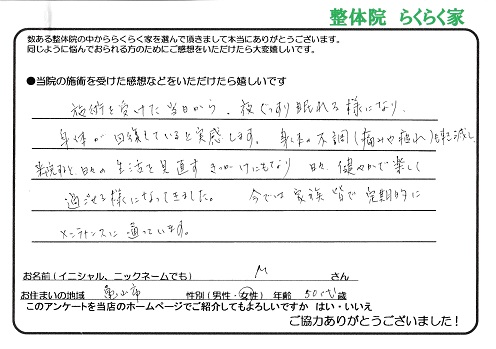 整体院 らくらく家
数ある整体院の中かららくらく家を選んで頂きまして本当にありがとうございます。
同じように悩んでおられる方のためにご感想をいただけたら大変嬉しいです。
●当院の施術を受けた感想などをいただけたら嬉しいです
施術を受けた当日から、夜ぐっすり眠れる様になり、
身体が回復していると実感します。身体の不調(痛みや疲れ)も軽減し、
来院すると日々の生活を見直すきっかけにもなり 日々、健やかで楽しく
過ごせる様になってきました。 今では家族皆で定期的に
メンテナンスに通っています。
お名前(イニシャル、ニックネームでも) M さん
お住まいの地域 亀山市 性別(男性・女性) 年齢 50代 歳
このアンケートを当店のホームページでご紹介してもよろしいですか はい・いいえ
ご協力ありがとうございました!